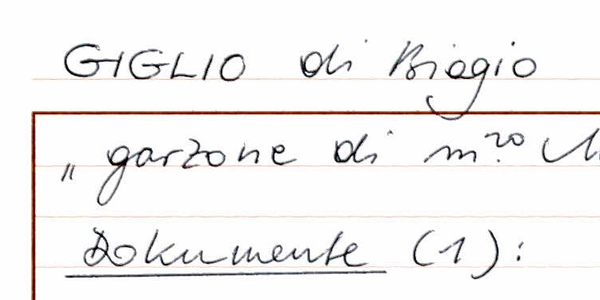 GIGLIO di Biagio
„ garzone di m.ro
Dokumente (1):